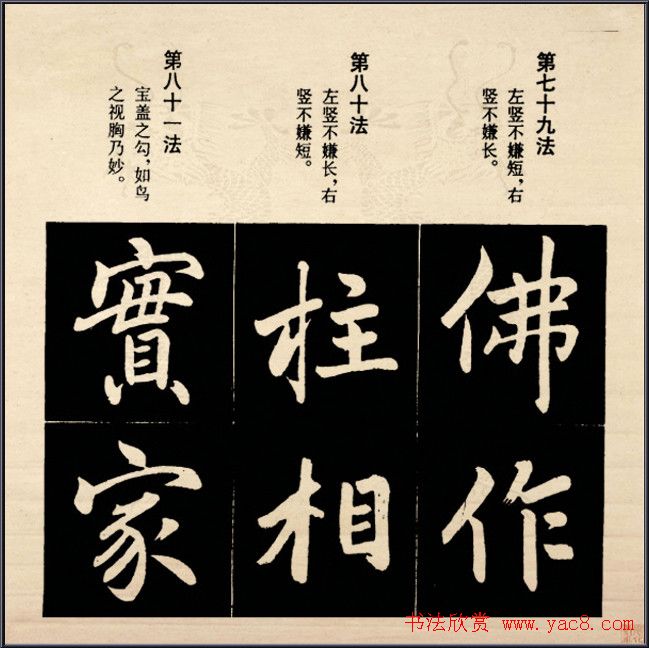 第七十九法
左竖不嫌短，右
竖不嫌长。
第八十法
左竖不嫌长，右
竖不嫌短。
第八十一法
宝盖之勾，如鸟
之视胸乃妙。
佛作
柱相
實家
书法欣赏 www.yac8.com